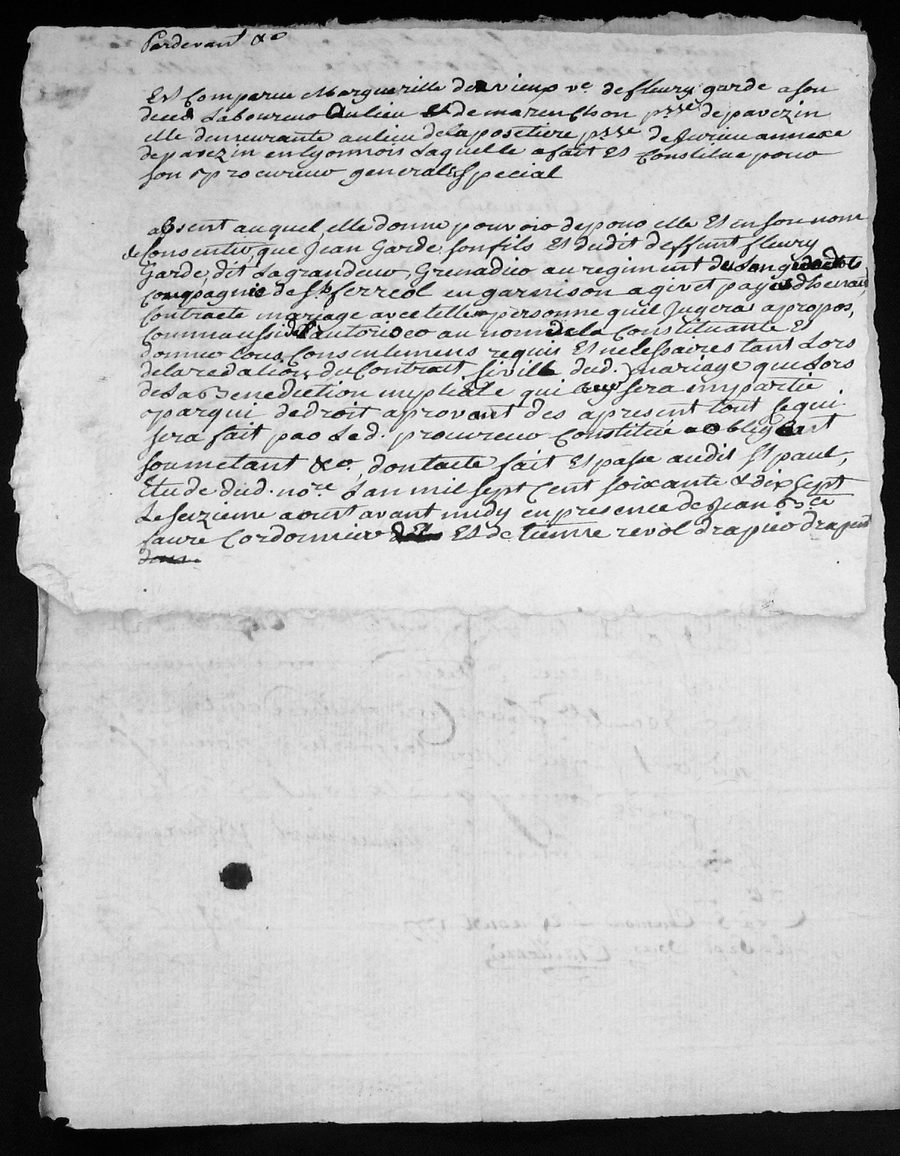 Pardevant &c
Est Comparue Margueritte dervieux ve. de fleury garde a son
deces Laboureur au lieu de marenchon psse de pavezin
elle demeurante au lieu de la posetiere psse de annexe
de pavezin en lyonnois Laquelle a fait Et Constitué pour
son procureur general & special
absent auquel elle donne pouvoir de pour elle Et en son nom
de Consentir que Jean Garde son fils Et dudit deffunt fleury
Garde dit Lagrandeur, Grenadier au regiment de Langedoc
Compagnie de St. ferreol en garnison a givet payes
Contracte mariage avec telle personne quil Jugera apropos,
Comme aussi de L'autoriser au nom de la Constituante Et
donner tous Consentemens requis Et necessaires tant Lors
de la redation du Contrat siville dud. mariage que Lors
de La Benediction nuptiale qui leur sera impartie
par qui de droit aprovant des apresent tout Ce qui
sera fait par Led. procureur Constitué obligeant
soumetant &c, dont acte fait Et passé audit St paul,
Etude dud. nore. L'an mil sept Cent soixante & dix sept
Le seizieme aoust avant midy en presence de Jean Bte
faure Cordonnier Et de Etienne revol drapier drapant